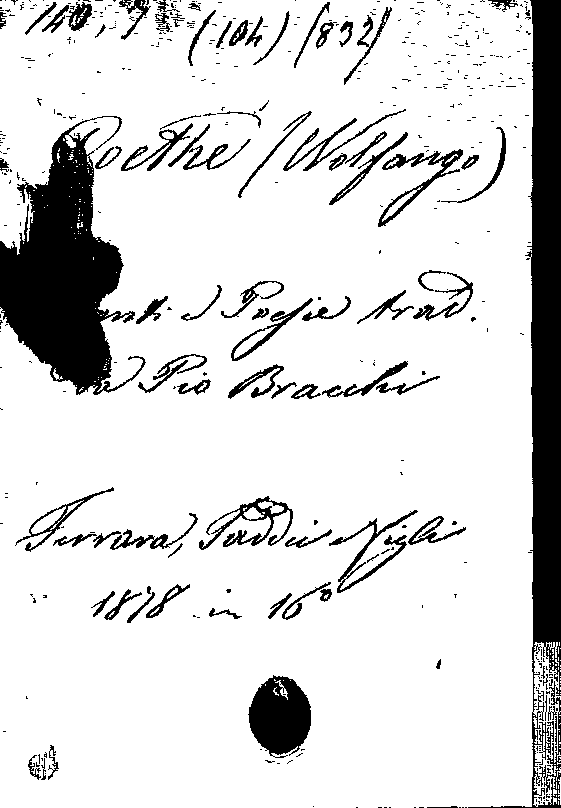 140, 7 (104) (832)
Goethe (Wolfango)
e Poesie trad.
da Pio Bracchi
Ferrara, Taddei e Figli
1878 in 16º